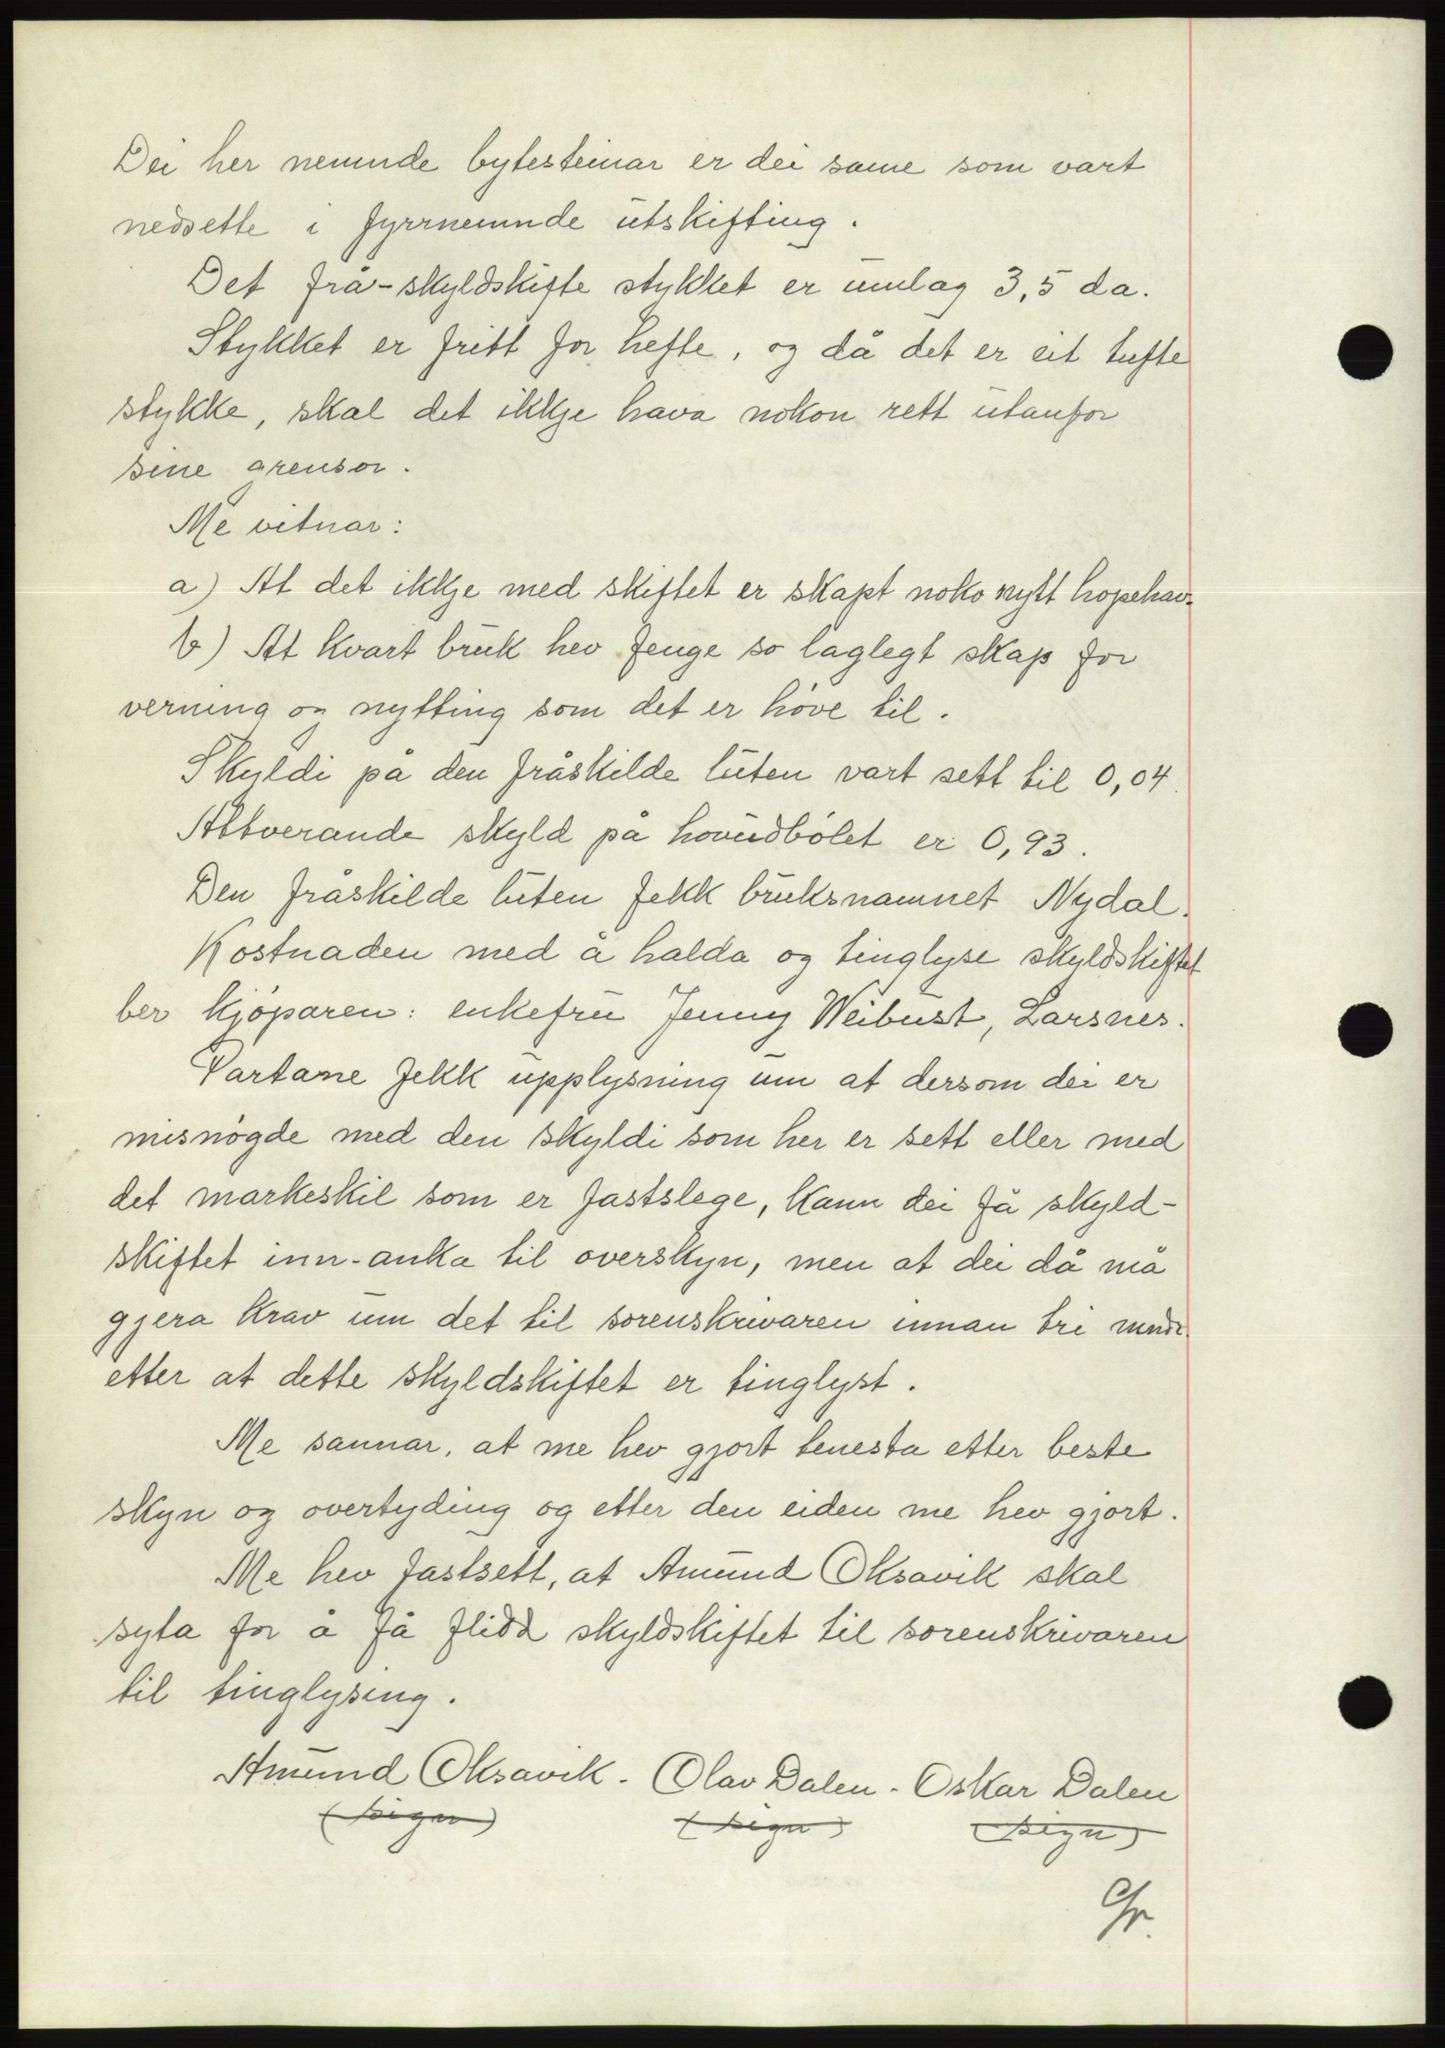 Dei her nemnde bytesteinar er dei same som vart
nedsette i fyrrnemnde utskifting.
Det frå-skyldskifte stykket er umlag 3,5 da.
Stykket er fritt for hefte, og då det er eit tufte
stykke, skal det ikkje hava nokon rett utanfor
sine grensor.
Me vitnar:
a) At det ikkje med skiftet er skapt noko nytt hopehav.
b) At kvart bruk hev fenge so laglegt skap for
verning og nytting som det er høve til.
Skyldi på den fråskilde luten vart sett til 0,04.
Attverande skyld på hovudbølet er 0,93.
Den fråskilde luten fekk bruksnamnet Nydal.
Kostnaden med å halda og tinglyse skyldskiftet
ber kjøparen: enkefru Jenny Weibust, Larsnes.
Partane fekk upplysning um at dersom dei er
misnøgde med den skyldi som her er sett eller med
det markeskil som er fastslege, kann dei få skyld-
skiftet inn-anka til overskyn, men at dei då må
gjera krav um det til sorenskrivaren innan tri mndr.
etter at dette skyldskiftet er tinglyst.
Me sannar, at me hev gjort tenesta etter beste
skyn og overtyding og etter den eiden me hev gjort.
Me hev fastsett, at Amund Oksavik skal
syta for å få flidd skyldskiftet til sorenskrivaren
til tinglysing.
Amund Oksavik. Olav Dalen. Oskar Dalen
(sign) (sign) (sign)